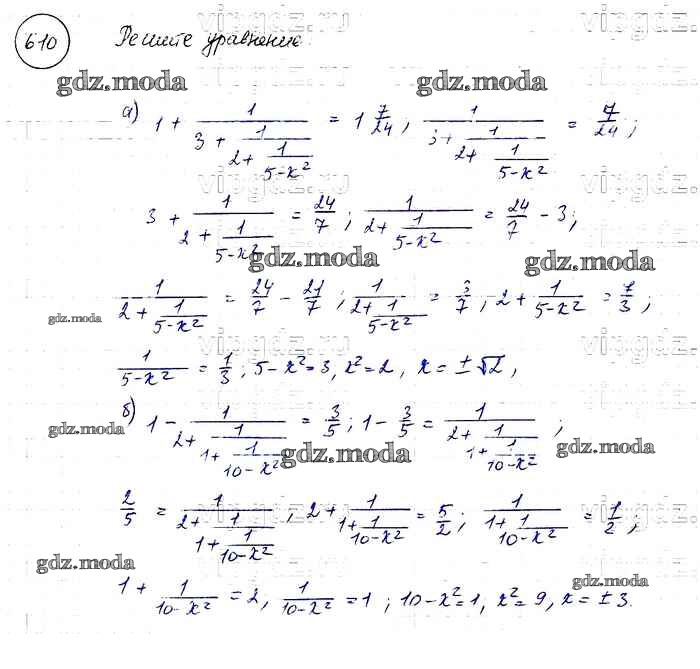 vipgdz.ru
610 Решите уравнение.
gdz.moda gdz.moda
а) 1 + 1/(3 + 1/(2 + 1/(5-x²))) = 1 7/24, 1/(3 + 1/(2 + 1/(5-x²))) = 7/24;
vipgdz.ru vipgdz.ru
3 + 1/(2 + 1/(5-x²)) = 24/7; 1/(2 + 1/(5-x²)) = 24/7 - 3;
gdz.moda gdz.moda
1/(2 + 1/(5-x²)) = 24/7 - 21/7; 1/(2 + 1/(5-x²)) = 3/7, 2 + 1/(5-x²) = 7/3;
gdz.moda
vipgdz.ru vipgdz.ru
1/(5-x²) = 1/3; 5-x²=3, x²=2, x = ±√2,
gdz.moda
б) 1 - 1/(2 + 1/(1 + 1/(10-x²))) = 3/5; 1 - 3/5 = 1/(2 + 1/(1 + 1/(10-x²)));
gdz.moda gdz.moda
vipgdz.ru vipgdz.ru
2/5 = 1/(2 + 1/(1 + 1/(10-x²))), 2 + 1/(1 + 1/(10-x²)) = 5/2; 1/(1 + 1/(10-x²)) = 1/2;
gdz.moda gdz.moda
1 + 1/(10-x²) = 2, 1/(10-x²) = 1; 10-x²=1, x²=9, x = ±3.
vipgdz.ru vipgdz.ru